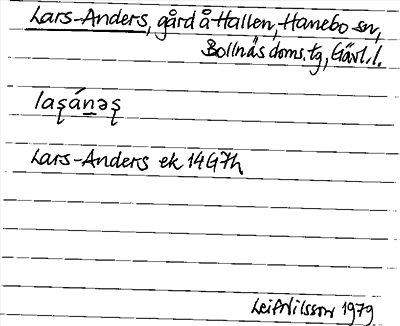 Lars-Anders, gård å Hallen, Hanebo sn,
Bollnäs doms.tg, Gävl.l.
Lars-Anders ek 14G7h
Leif Nilsson 1979